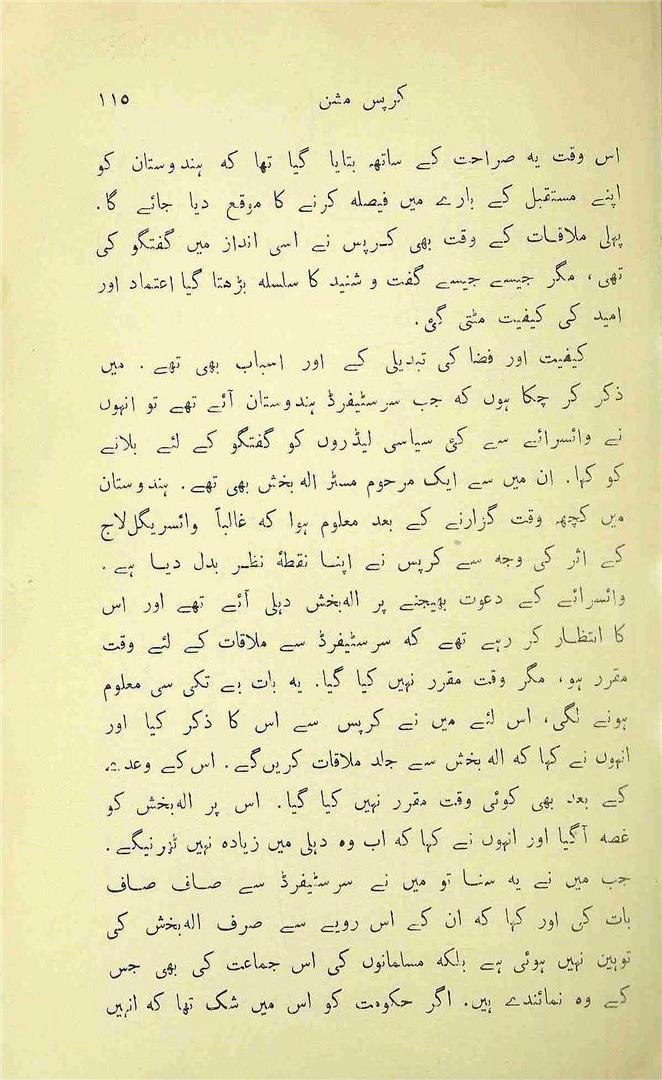 کرپس مشن ۱۱۵
اس وقت یہ صراحت کے ساتھ بتایا گیا تھا کہ ہندوستان کو
اپنے مستقبل کے بارے میں فیصلہ کرنے کا موقع دیا جائے گا.
پہلی ملاقات کے وقت بھی کرپس نے اسی انداز میں گفتگو کی
تھی، مگر جیسے جیسے گفت و شنید کا سلسلہ بڑھتا گیا اعتماد اور
امید کی کیفیت مٹتی گئی.
کیفیت اور فضا کی تبدیلی کے اور اسباب بھی تھے. میں
ذکر کر چکا ہوں کہ جب سرسٹیفرڈ ہندوستان آئے تھے تو انہوں
نے وائسرائے سے کئی سیاسی لیڈروں کو گفتگو کے لئے بلانے
کو کہا. ان میں سے ایک مرحوم مسٹر الہ بخش بھی تھے. ہندوستان
میں کچھہ وقت گزارنے کے بعد معلوم ہوا کہ غالباً وائسریگل لاج
کے اثر کی وجہ سے کرپس نے اپنا نقطۂ نظر بدل دیا ہے.
وائسرائے کے دعوت بھیجنے پر الہ بخش دہلی آئے تھے اور اس
کا انتظار کر رہے تھے کہ سرسٹیفرڈ سے ملاقات کے لئے وقت
مقرر ہو، مگر وقت مقرر نہیں کیا گیا. یہ بات بے تکی سی معلوم
ہونے لگی، اس لئے میں نے کرپس سے اس کا ذکر کیا اور
انہوں نے کہا کہ الہ بخش سے جلد ملاقات کریں گے. اس کے وعدے
کے بعد بھی کوئی وقت مقرر نہیں کیا گیا. اس پر الہ بخش کو
غصہ آگیا اور انہوں نے کہا کہ اب وہ دہلی میں زیادہ نہیں ٹہرنیگے.
جب میں نے یہ سنا تو میں نے سرسٹیفرڈ سے صاف صاف
بات کی اور کہا کہ ان کے اس رویے سے صرف الہ بخش کی
توہین نہیں ہوئی ہے بلکہ مسلمانوں کی اس جماعت کی بھی جس
کے وہ نمائندے ہیں. اگر حکومت کو اس میں شک تھا کہ انہیں